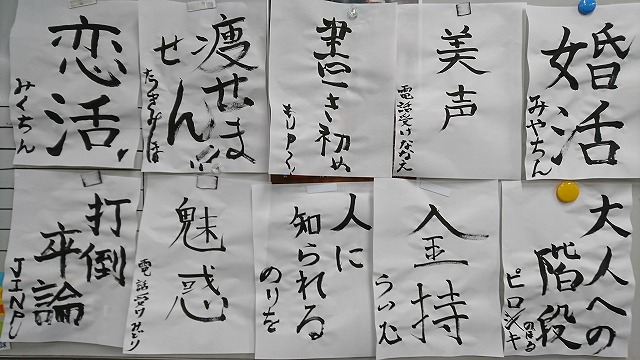 恋活
みくちん
痩せま
せん
書き初め
美声
電話受けながえ
婚活
みやちん
打倒
卒論
魅惑
電話受けみどり
人に
知られる
のりを
金持
大人への
階段
のぼる
ピロシキ